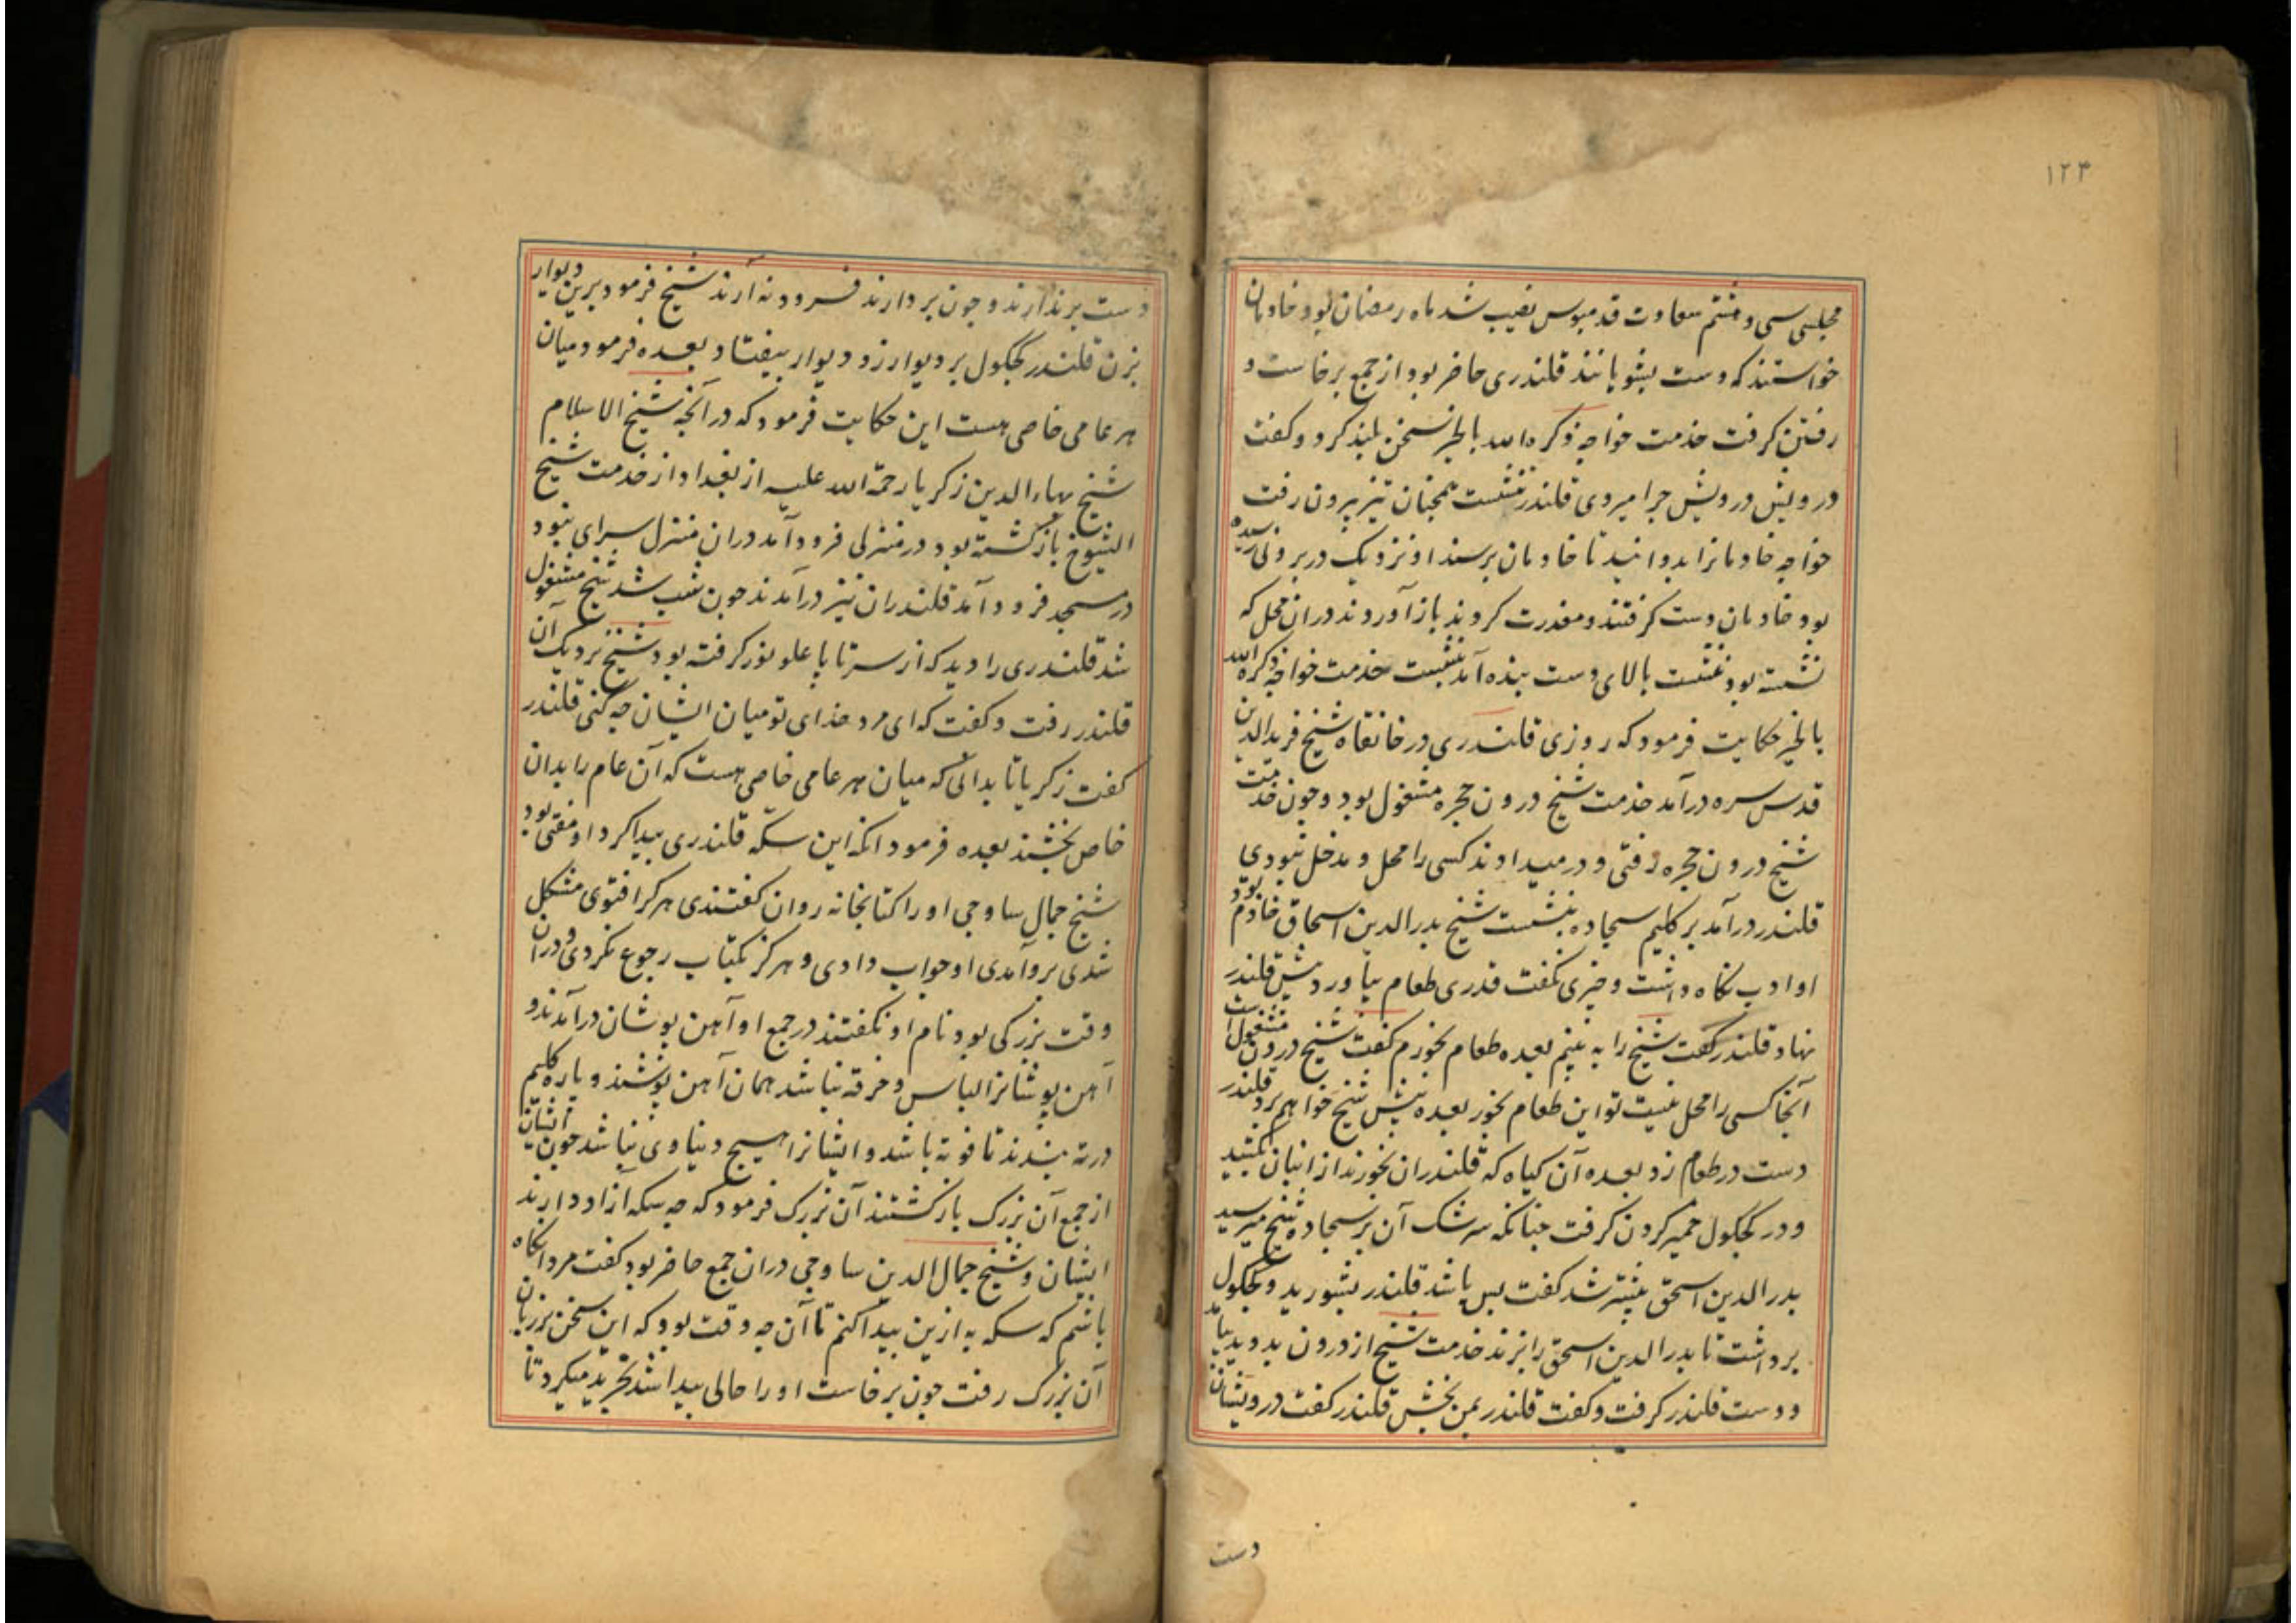 ۱۲۴
مجلس سی و هشتم سعادت قدمبوس نصیب شد ماه رمضان بود خادمان
خواستند که دست بشویانند قلندری حاضر بود از جمع برخاست و
رفتن کرفت خدمت خواجه ذکره الله بالخیر سخن بلند کرد و کفت
درویش درویش چرا میروی قلندر ننشست همچنان تیز بیرون رفت
خواجه خادمانرا بدوانید تا خادمان برسند او نزدیک در بیرونی رسیده
بود خادمان دست کرفتند و معذرت کردند باز آوردند دران محل که
نشسته بود ننشست بالای دست بنده آمد بنشست خدمت خواجه ذکره الله
بالخیر حکایت فرمود که روزی قلندری در خانقاه شیخ فریدالدین
قدس سره درآمد خدمت شیخ درون حجره مشغول بود و چون خدمت
شیخ درون حجره رفتی و در میدادند کسی را محل و مدخل نبودی
قلندر درآمد بر کلیم سجاده بنشست شیخ بدرالدین اسحاق خادم بود
او ادب نکاه داشت و چیزی نکفت قدری طعام بیاورد پیش قلندر
نهاد قلندر کفت شیخ را به بینم بعده طعام بخورم کفت شیخ درون مشغول است
آنجا کسی را محل نیست تو این طعام بخور بعده پیش شیخ خواهم برد قلندر
دست در طعام زد بعده آن کیاه که قلندران بخورند از انبان کشید
و در کجکول خمیر کردن کرفت چنانکه سرشک آن بر سجاده شیخ میرسید
بدرالدین اسحق پیشتر شد کفت بس باشد قلندر بشورید و کجکول
برداشت تا بدرالدین اسحق را بزند خدمت شیخ از درون بدوید بیامد
و دست قلندر کرفت و کفت قلندر بمن بخش قلندر کفت درویشان
دست
دست برندارند و چون بردارند فرود نه آرند شیخ فرمود برین دیوار
بزن قلندر کجکول بر دیوار زد دیوار بیفتاد بعده فرمود میان
هر عامی خاصی هست این حکایت فرمود که در آنچه شیخ الاسلام
شیخ بهاءالدین زکریا رحمة الله علیه از بغداد از خدمت شیخ
الشیوخ بازکشته بود در منزلی فرود آمد دران منزل سرای نبود
در مسجد فرود آمد قلندران نیز درآمدند چون شب شد شیخ مشغول
شد قلندری را دید که از سر تا پا علو نور کرفته بود شیخ نزدیک آن
قلندر رفت و کفت که ای مرد خدای تو میان ایشان چه کنی قلندر
کفت زکریا تا بدانی که میان هر عامی خاصی هست که آن عام را بدان
خاص بخشند بعده فرمود انکه این سکّه قلندری پیدا کرد او مفتی بود
شیخ جمال ساوجی او را کتابخانه روان کفتندی هر کرا فتوی مشکل
شدی بر وآمدی او جواب دادی و هرکز بکتاب رجوع نکردی و دران
وقت بزرکی بود نام او نکفتند در جمع او آهن پوشان درآمدند و
آهن پوشانرا لباس و خرقه نباشد همان آهن پوشند و پاره کلیم
در ته بندند تا فوته باشد و ایشانرا هیچ دنیاوی نباشد چون ایشان
از جمع آن بزرک بازکشتند آن بزرک فرمود که چه سکه آزاد دارند
ایشان و شیخ جمال الدین ساوجی دران جمع حاضر بود کفت مرد انکاه
باشم که سکه به ازین پیدا کنم تا آن چه وقت بود که این سخن بر زبان
آن بزرک رفت چون برخاست او را حالی پیدا شد تجرید میکرد تا